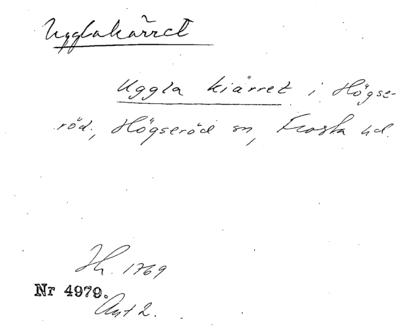 Ugglakärret
Uggla kiärret i Högse-
röd, Högseröd sn, Frosta hd.
Jh. 1769
Nr 4979.
Aut 2.